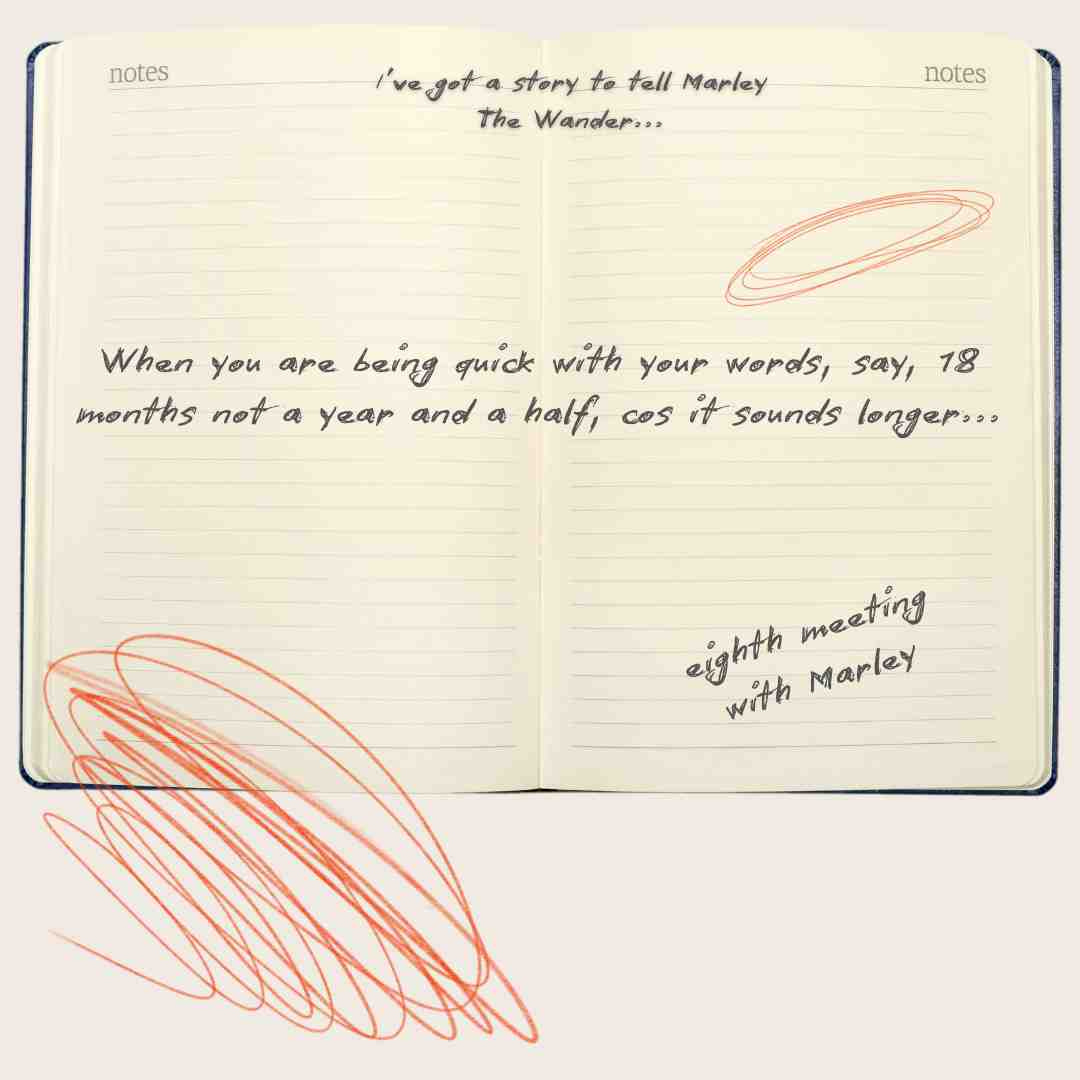 notes
notes
i've got a story to tell Marley
The Wander...
When you are being quick with your words, say, 18
months not a year and a half, cos it sounds longer...
eighth meeting
with Marley